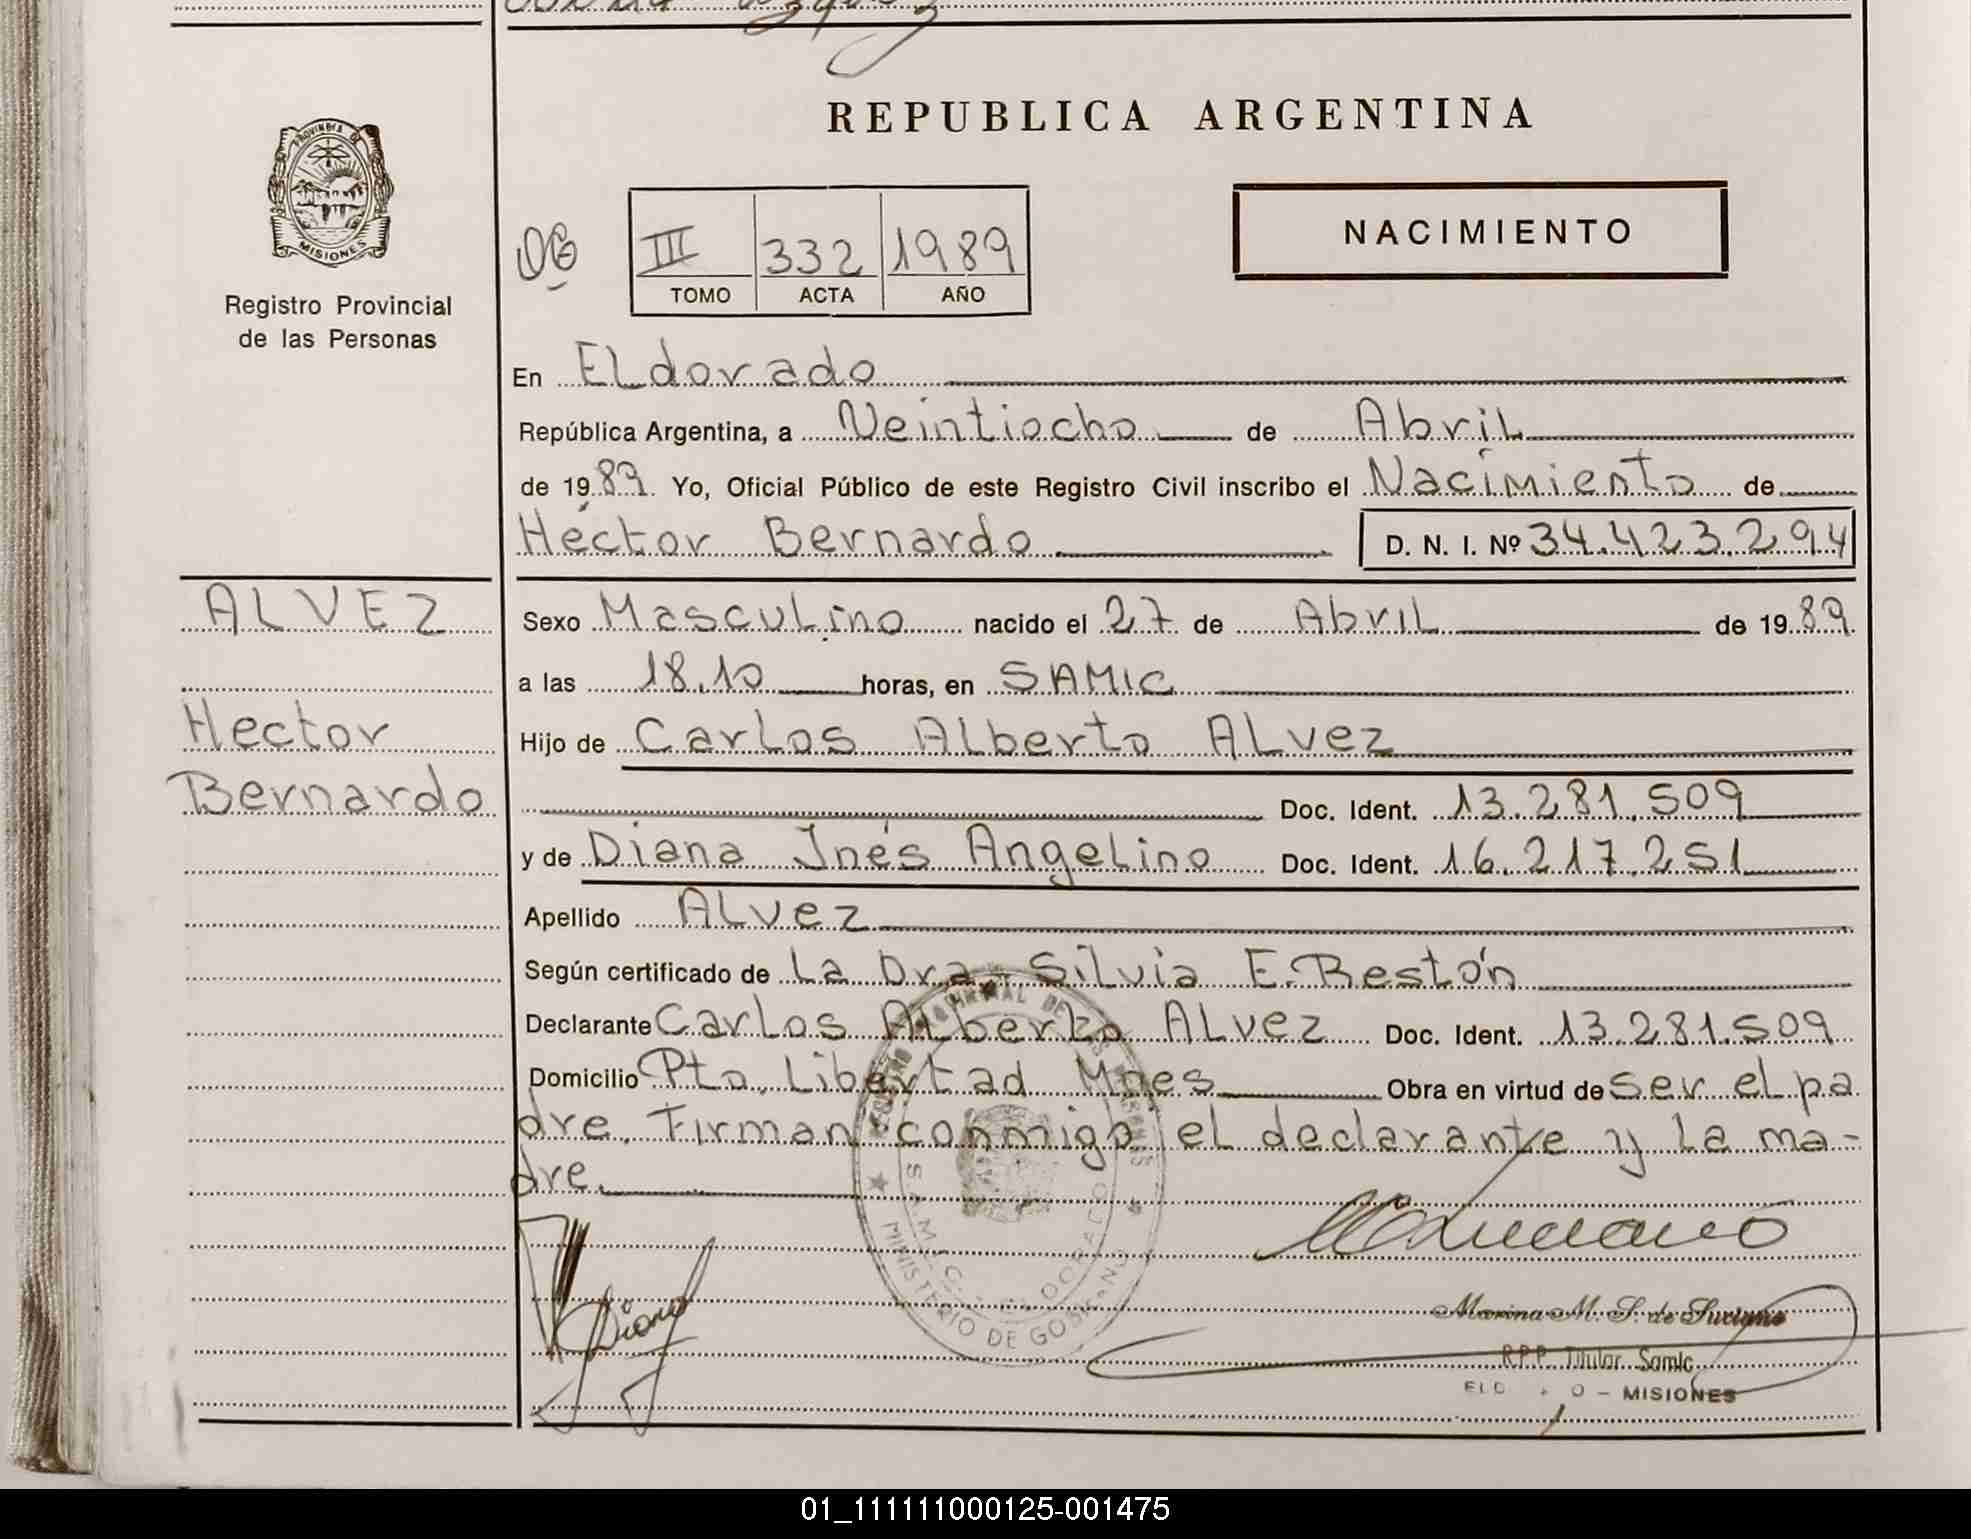 REPUBLICA ARGENTINA
PROVINCIA DE
MISIONES
Registro Provincial
de las Personas
III 332 1989
TOMO ACTA AÑO
NACIMIENTO
En ELdorado
República Argentina, a Veintiocho de AbriL
de 1989. Yo, Oficial Público de este Registro Civil inscribo el Nacimiento de
Héctor Bernardo D. N. I. Nº 34.423.294
ALVEZ
Hector
Bernardo
Sexo MascuLino nacido el 27 de AbriL de 1989.
a las 18.10 horas, en SAMIC
Hijo de CarLos ALberto ALvez
Doc. Ident. 13.281.509
y de Diana Inés AngeLino Doc. Ident. 16.217.251
Apellido ALvez
Según certificado de La Dra. SiLvia E. Restón
Declarante CarLos ALberto ALvez Doc. Ident. 13.281.509
Domicilio Pto. Libertad Mnes Obra en virtud de ser el pa
dre. Firman conmigo el declarante y La ma-
dre.
S.A.M.I.C.
MINISTERIO DE GOBIERNO
Diana
Marina M. S. de Suciano
R.P.P. Titular Samic
MISIONES
01_111111000125-001475